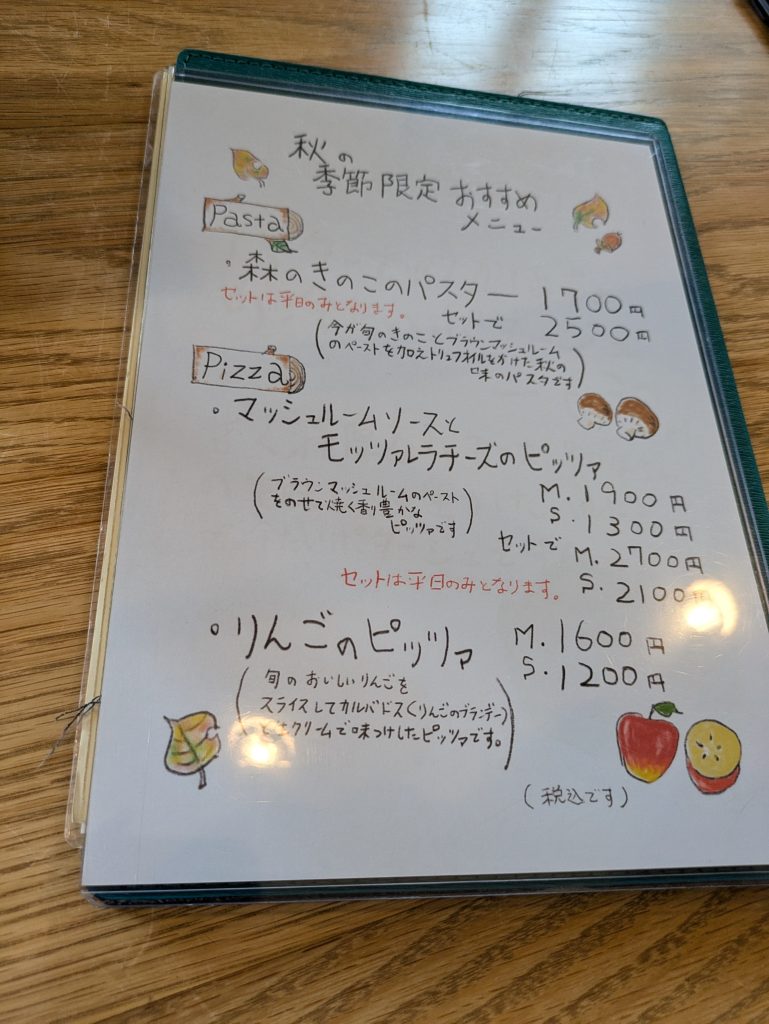 秋の
季節限定おすすめ
メニュー
Pasta
・森のきのこのパスター 1700円
セットは平日のみとなります。 セットで 2500円
(今が旬のきのことブラウンマッシュルーム
のペーストを加えトリュフオイルをかけた秋の
味のパスタです)
Pizza
・マッシュルームソースと
モッツァレラチーズのピッツァ
(ブラウンマッシュルームのペースト
をのせて焼く香り豊かな
ピッツァです)
M.1900円
S.1300円
セットで M.2700円
セットは平日のみとなります。 S.2100円
・りんごのピッツァ M.1600円
S.1200円
(旬のおいしいりんごを
スライスしてカルバドス(りんごのブランデー)
と生クリームで味つけしたピッツァです。)
(税込です)